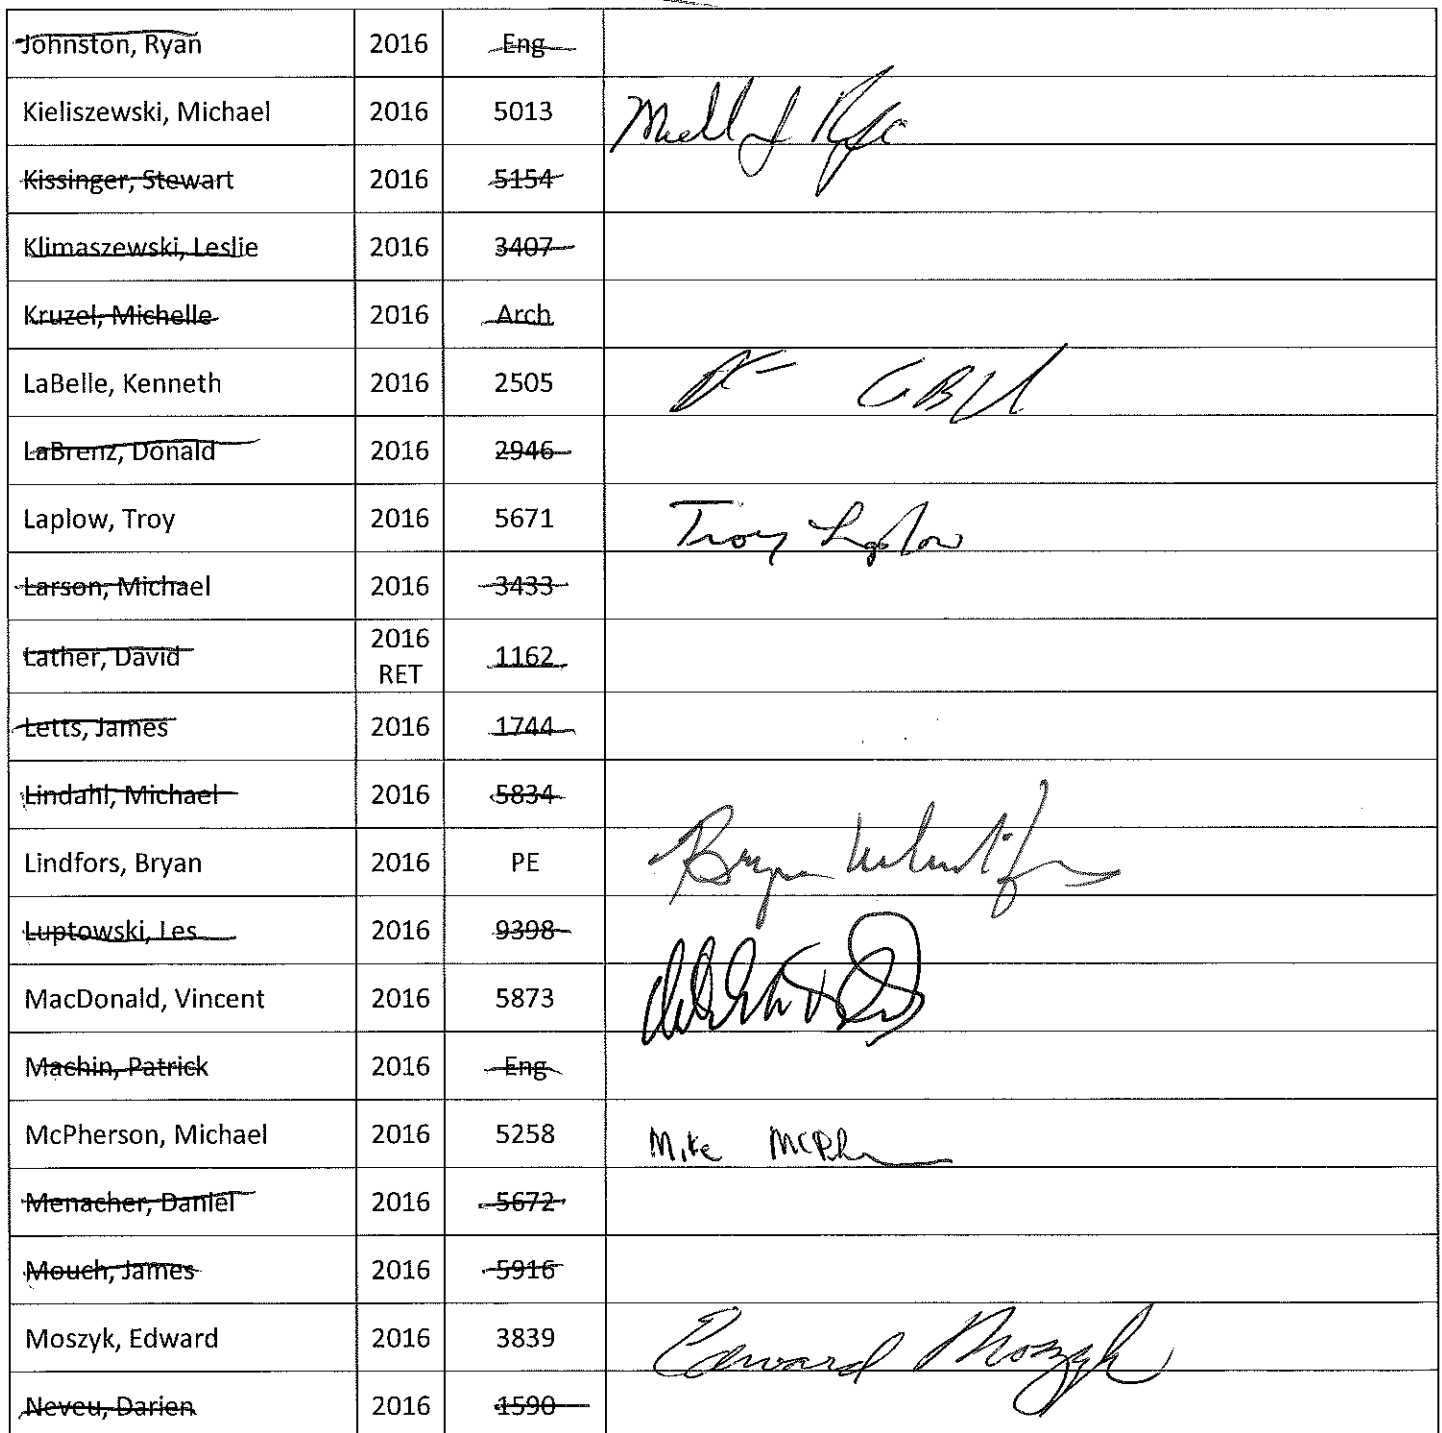 Johnston, Ryan 2016 Eng
Kieliszewski, Michael 2016 5013
Kissinger, Stewart 2016 5154
Klimaszewski, Leslie 2016 3407
Kruzel, Michelle 2016 Arch
LaBelle, Kenneth 2016 2505
LaBrenz, Donald 2016 2946
Laplow, Troy 2016 5671 Troy Laplow
Larson, Michael 2016 3433
Lather, David 2016 RET 1162
Letts, James 2016 1744
Lindahl, Michael 2016 5834
Lindfors, Bryan 2016 PE Bryan
Luptowski, Les 2016 9398
MacDonald, Vincent 2016 5873
Machin, Patrick 2016 Eng
McPherson, Michael 2016 5258 Mike McPh
Menacher, Daniel 2016 5672
Mouch, James 2016 5916
Moszyk, Edward 2016 3839 Edward Moszyk
Neveu, Darien 2016 1590